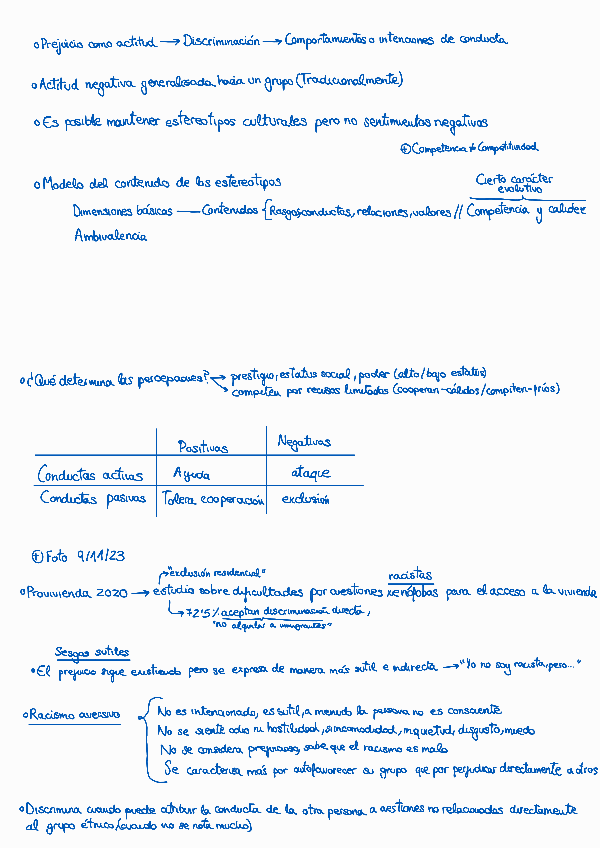 o Prejuicio como actitud → Discriminación → Comportamientos o intenciones de conducta
o Actitud negativa generalizada hacia un grupo (Tradicionalmente)
o Es posible mantener estereotipos culturales pero no sentimientos negativos
⊕ Competencia ≠ Competitividad
o Modelo del contenido de los estereotipos
Cierto carácter
evolutivo
Dimensiones básicas — Contenidos { Rasgos, conductas, relaciones, valores // Competencia y calidez
Ambivalencia
o ¿Qué determina las percepciones? → prestigio, estatus social, poder (alto/bajo estatus)
→ compiten por recursos limitados (cooperan-cálidos/compiten-fríos)
Positivas Negativas
Conductas activas Ayuda ataque
Conductas pasivas Tolera cooperación exclusión
⊕ Foto 9/11/23
→ "exclusión residencial" racistas
o Provivienda 2020 → estudio sobre dificultades por cuestiones xenófobas para el acceso a la vivienda
→ 72'5% aceptan discriminación directa,
"no alquilar a inmigrantes"
Sesgos sutiles
• El prejuicio sigue existiendo pero se expresa de manera más sutil e indirecta → "Yo no soy racista, pero..."
o Racismo aversivo { No es intencionado, es sutil, a menudo la persona no es consciente
No se siente odio ni hostilidad, si incomodidad, inquietud, disgusto, miedo
No se considera prejuicioso, sabe que el racismo es malo
Se caracteriza más por autofavorecer su grupo que por perjudicar directamente a otros
o Discrimina cuando puede atribuir la conducta de la otra persona a cuestiones no relacionadas directamente
al grupo étnico (cuando no se nota mucho)